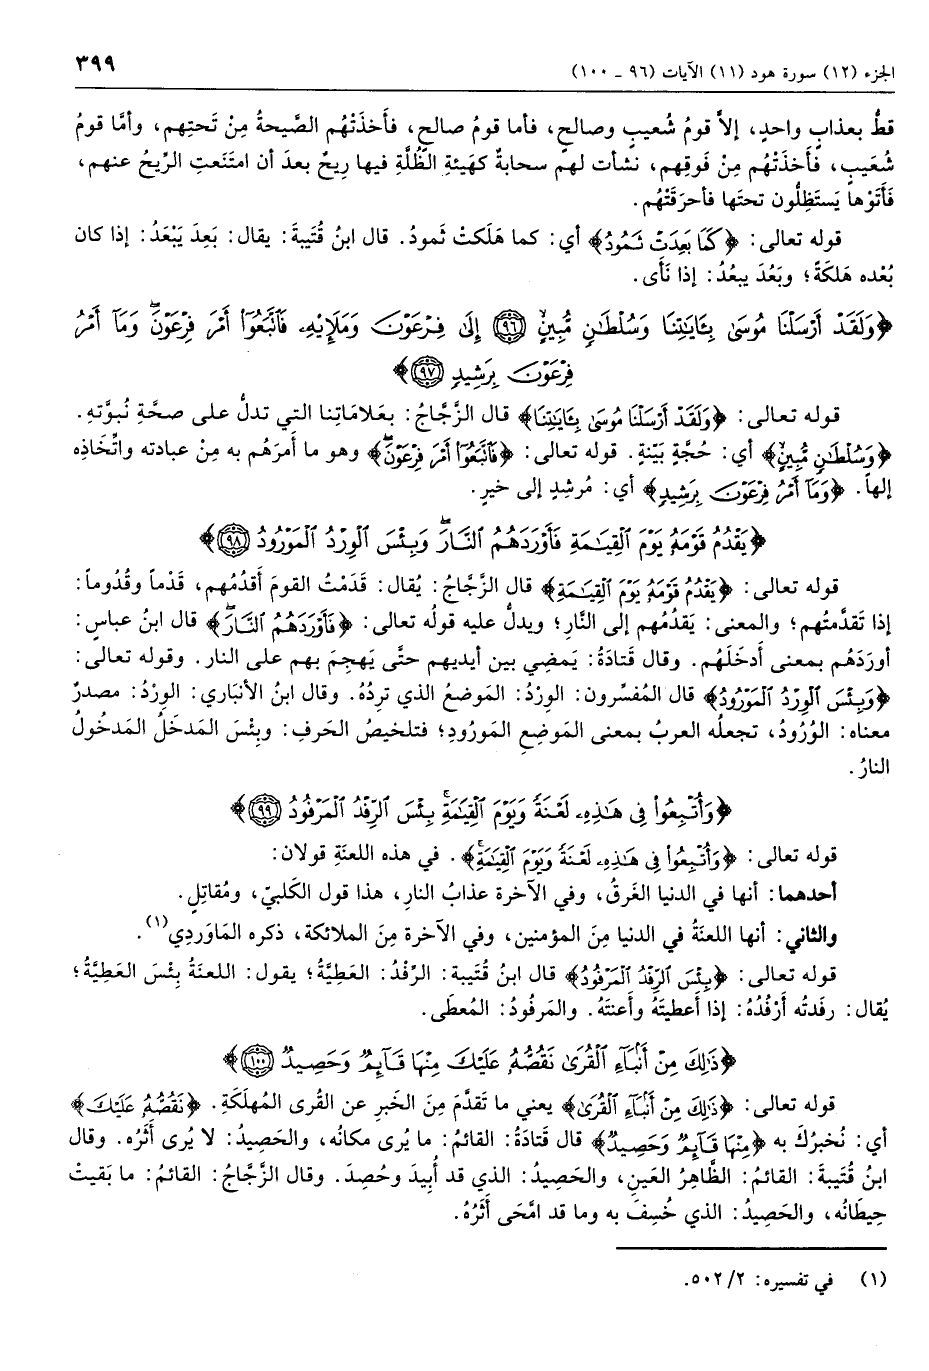 الجزء (١٢) سورة هود (١١) الآيات (٩٦ ـ ١٠٠)
٣٩٩
قطُّ بعذابٍ واحدٍ، إلاَّ قومُ شُعيبٍ وصالحٍ، فأما قومُ صالحٍ، فأخذَتْهُم الصَّيحةُ مِنْ تَحتِهِم، وأمَّا قومُ
شُعَيبٍ، فَأخذَتْهُم مِنْ فَوقِهِم، نشأت لهم سحابةٌ كهَيئةِ الظُّلَّةِ فيها رِيحٌ بعدَ أن امتَنَعتِ الرِّيحُ عنهم،
فَأَتَوْها يَستَظِلُّون تحتَها فأحرَقَتْهُم.
قوله تعالى: ﴿كَمَا بَعِدَتْ ثَمُودُ﴾ أي: كما هَلَكتْ ثَمودُ. قال ابنُ قُتَيبةَ: يقال: بَعِدَ يَبْعَدُ: إذا كان
بُعْده هَلكَةً؛ وبَعُدَ يبعُدُ: إذا نَأى.
﴿وَلَقَدْ أَرْسَلْنَا مُوسَىٰ بِـَٔايَـٰتِنَا وَسُلْطَـٰنٍ مُّبِينٍ ﴿٩٦﴾ إِلَىٰ فِرْعَوْنَ وَمَلَإِي۟هِۦ فَٱتَّبَعُوٓا۟ أَمْرَ فِرْعَوْنَ ۖ وَمَآ أَمْرُ
فِرْعَوْنَ بِرَشِيدٍ ﴿٩٧﴾﴾
قوله تعالى: ﴿وَلَقَدْ أَرْسَلْنَا مُوسَىٰ بِـَٔايَـٰتِنَا﴾ قال الزَّجَّاجُ: بعَلامَاتِنا التي تدلُّ على صحَّةِ نُبوَّتهِ.
﴿وَسُلْطَـٰنٍ مُّبِينٍ﴾ أي: حُجَّةٍ بَيّنَةٍ. قوله تعالى: ﴿فَٱتَّبَعُوٓا۟ أَمْرَ فِرْعَوْنَ ۖ﴾ وهو ما أَمرَهُم به مِنْ عبادته واتِّخَاذِه
إلهاً. ﴿وَمَآ أَمْرُ فِرْعَوْنَ بِرَشِيدٍ﴾ أي: مُرشِدٍ إلى خيرٍ.
﴿يَقْدُمُ قَوْمَهُۥ يَوْمَ ٱلْقِيَـٰمَةِ فَأَوْرَدَهُمُ ٱلنَّارَ ۖ وَبِئْسَ ٱلْوِرْدُ ٱلْمَوْرُودُ ﴿٩٨﴾﴾
قوله تعالى: ﴿يَقْدُمُ قَوْمَهُۥ يَوْمَ ٱلْقِيَـٰمَةِ﴾ قال الزَّجَّاجُ: يُقال: قَدَمْتُ القومَ أَقدُمُهم، قَدْماً وقُدُوماً:
إذا تَقدَّمتُهم؛ والمعنى: يَقدُمُهم إلى النَّارِ؛ ويدلُّ عليه قولُه تعالى: ﴿فَأَوْرَدَهُمُ ٱلنَّارَ ۖ﴾ قال ابنُ عباسٍ:
أورَدَهُم بمعنى أَدخَلَهُم. وقال قَتادَةُ: يَمضِي بين أيديهم حتَّى يَهجِمَ بهم على النار. وقوله تعالى:
﴿وَبِئْسَ ٱلْوِرْدُ ٱلْمَوْرُودُ﴾ قال المُفسِّرون: الوِرْدُ: المَوضعُ الذي ترِدُهُ. وقال ابنُ الأنبَاري: الوِرْدُ: مصدرٌ
معناه: الوُرُودُ، تجعلُه العربُ بمعنى المَوضِعِ المَورُودِ؛ فتلخيصُ الحَرفِ: وبِئْسَ المَدخَلُ المَدخُولُ
النارُ.
﴿وَأُتْبِعُوا۟ فِى هَـٰذِهِۦ لَعْنَةً وَيَوْمَ ٱلْقِيَـٰمَةِ ۚ بِئْسَ ٱلرِّفْدُ ٱلْمَرْفُودُ ﴿٩٩﴾﴾
قوله تعالى: ﴿وَأُتْبِعُوا۟ فِى هَـٰذِهِۦ لَعْنَةً وَيَوْمَ ٱلْقِيَـٰمَةِ ۚ﴾. في هذه اللعنَةِ قولان:
أحدهما: أنها في الدنيا الغَرقُ، وفي الآخرة عذابُ النارِ، هذا قول الكَلبيّ، ومُقاتِلٍ.
والثاني: أنها اللعنَةُ في الدنيا مِنَ المؤمنين، وفي الآخرة مِنَ الملائكة، ذكره المَاوَردِي(١).
قوله تعالى: ﴿بِئْسَ ٱلرِّفْدُ ٱلْمَرْفُودُ﴾ قال ابنُ قُتَيبة: الرِّفْدُ: العَطِيَّةُ؛ يقول: اللعنةُ بِئْسَ العَطِيَّةُ؛
يُقال: رفَدتُه أَرْفُدُهُ: إذا أعطيتَهُ وأعنتَهُ. والمَرفُودُ: المُعطَى.
﴿ذَٰلِكَ مِنْ أَنۢبَآءِ ٱلْقُرَىٰ نَقُصُّهُۥ عَلَيْكَ مِنْهَا قَآئِمٌ وَحَصِيدٌ ﴿١٠٠﴾﴾
قوله تعالى: ﴿ذَٰلِكَ مِنْ أَنۢبَآءِ ٱلْقُرَىٰ﴾ يعني ما تَقدَّم مِنَ الخَبرِ عن القُرى المُهلَكَةِ. ﴿نَقُصُّهُۥ عَلَيْكَ﴾
أي: نُخبرُكَ به ﴿مِنْهَا قَآئِمٌ وَحَصِيدٌ﴾ قال قَتادَةُ: القائمُ: ما يُرى مكانُه، والحَصِيدُ: لا يُرى أَثَرُه. وقال
ابنُ قُتيبةَ: القائمُ: الظَّاهِرُ العَينِ، والحَصِيدُ: الذي قد أُبِيدَ وحُصِدَ. وقال الزَّجَّاجُ: القائمُ: ما بَقيتْ
حِيطَانُه، والحَصِيدُ: الذي خُسِفَ به وما قد امَّحَى أَثَرُهُ.
(١) في تفسيره: ٥٠٢/٢.